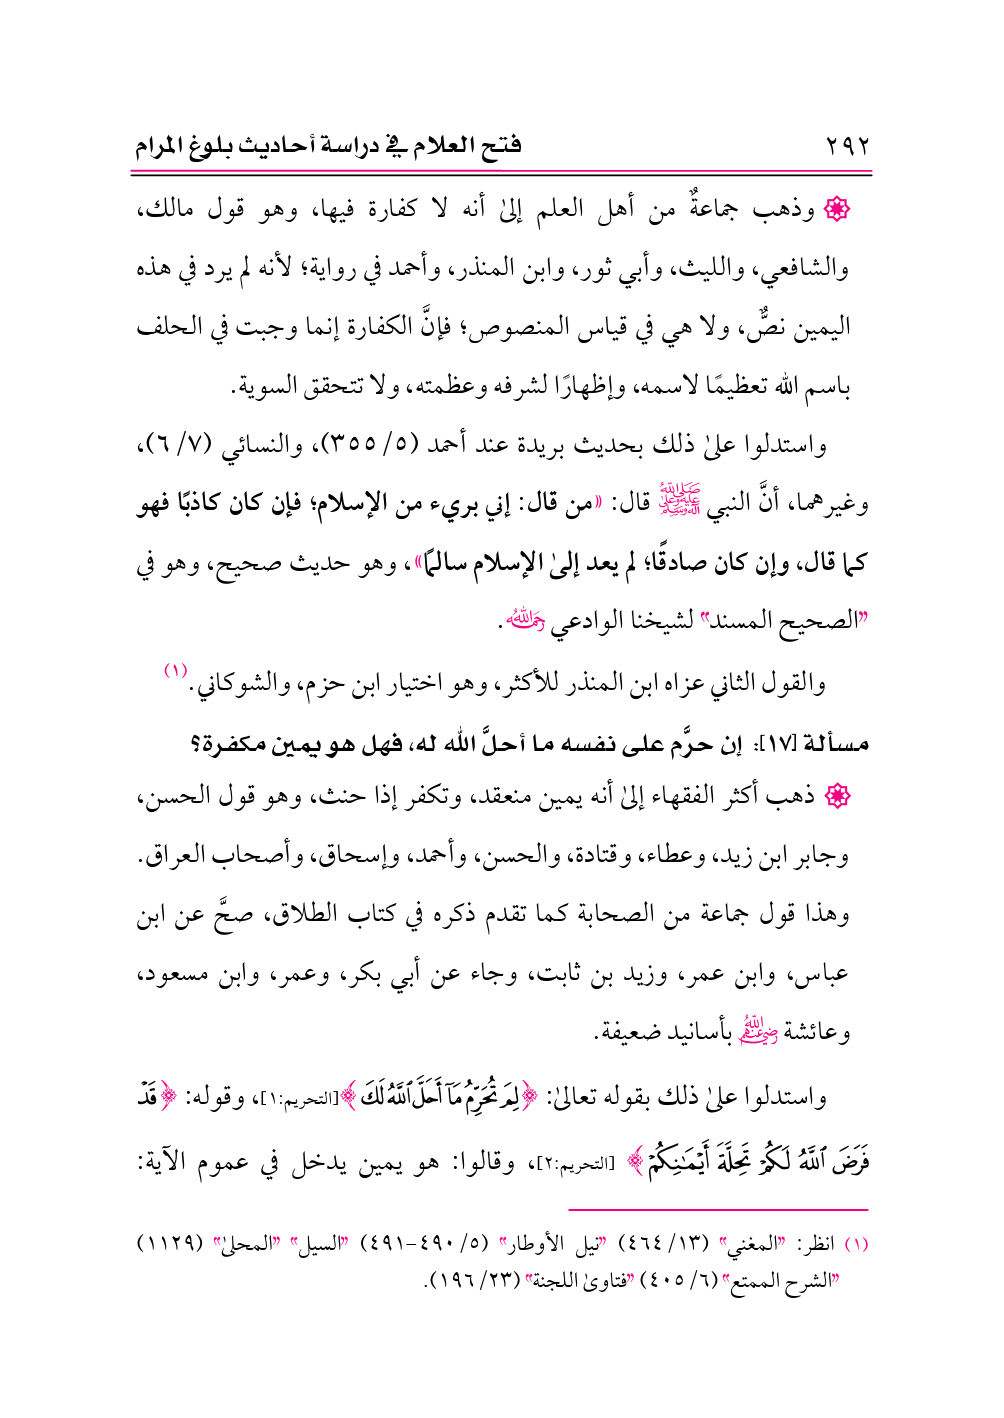 ٢٩٢ فتح العلام في دراسة أحاديث بلوغ المرام
وذهب جماعةٌ من أهل العلم إلىٰ أنه لا كفارة فيها، وهو قول مالك،
والشافعي، والليث، وأبي ثور، وابن المنذر، وأحمد في رواية؛ لأنه لم يرد في هذه
اليمين نصٌّ، ولا هي في قياس المنصوص؛ فإنَّ الكفارة إنما وجبت في الحلف
باسم الله تعظيمًا لاسمه، وإظهارًا لشرفه وعظمته، ولا تتحقق السوية.
واستدلوا علىٰ ذلك بحديث بريدة عند أحمد (٥/ ٣٥٥)، والنسائي (٧/ ٦)،
وغيرهما، أنَّ النبي ﷺ قال: «من قال: إني بريء من الإسلام؛ فإن كان كاذبًا فهو
كما قال، وإن كان صادقًا؛ لم يعد إلىٰ الإسلام سالمًا»، وهو حديث صحيح، وهو في
"الصحيح المسند" لشيخنا الوادعي رحمه الله.
والقول الثاني عزاه ابن المنذر للأكثر، وهو اختيار ابن حزم، والشوكاني.(١)
مسألة [١٧]: إن حرَّم على نفسه ما أحلَّ الله له، فهل هو يمين مكفرة؟
ذهب أكثر الفقهاء إلىٰ أنه يمين منعقد، وتكفر إذا حنث، وهو قول الحسن،
وجابر ابن زيد، وعطاء، وقتادة، والحسن، وأحمد، وإسحاق، وأصحاب العراق.
وهذا قول جماعة من الصحابة كما تقدم ذكره في كتاب الطلاق، صحَّ عن ابن
عباس، وابن عمر، وزيد بن ثابت، وجاء عن أبي بكر، وعمر، وابن مسعود،
وعائشة رضي الله عنهم بأسانيد ضعيفة.
واستدلوا علىٰ ذلك بقوله تعالىٰ: ﴿لِمَ تُحَرِّمُ مَآ أَحَلَّ ٱللَّهُ لَكَ﴾ [التحريم:١]، وقوله: ﴿قَدْ
فَرَضَ ٱللَّهُ لَكُمْ تَحِلَّةَ أَيْمَـٰنِكُمْ﴾ [التحريم:٢]، وقالوا: هو يمين يدخل في عموم الآية:
(١) انظر: "المغني" (١٣/ ٤٦٤) "نيل الأوطار" (٥/ ٤٩٠-٤٩١) "السيل" "المحلىٰ" (١١٢٩)
"الشرح الممتع" (٦/ ٤٠٥) "فتاوىٰ اللجنة" (٢٣/ ١٩٦).